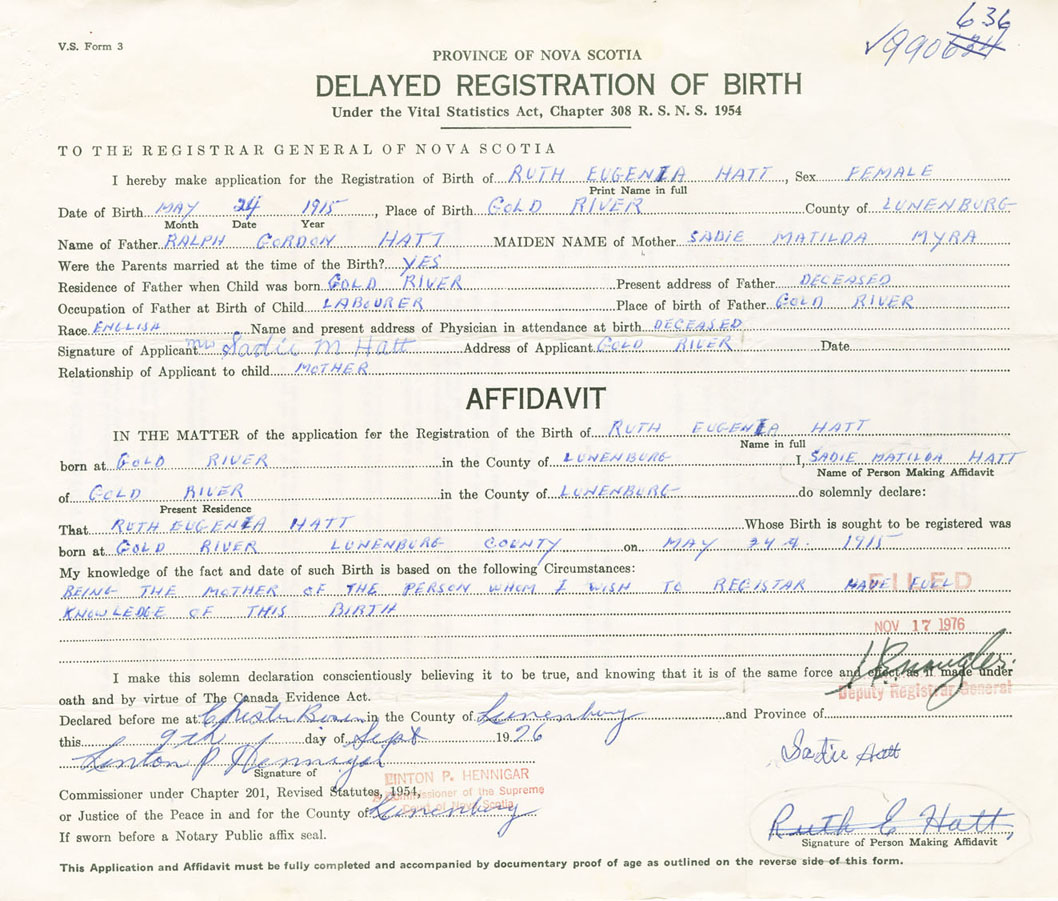 636
V.S. Form 3 √990 624
PROVINCE OF NOVA SCOTIA
DELAYED REGISTRATION OF BIRTH
Under the Vital Statistics Act, Chapter 308 R. S. N. S. 1954
TO THE REGISTRAR GENERAL OF NOVA SCOTIA
I hereby make application for the Registration of Birth of RUTH EUGENIA HATT, Sex FEMALE
Print Name in full
Date of Birth MAY 24 1915, Place of Birth GOLD RIVER County of LUNENBURG
Month Date Year
Name of Father RALPH GORDON HATT MAIDEN NAME of Mother SADIE MATILDA MYRA
Were the Parents married at the time of the Birth? YES
Residence of Father when Child was born GOLD RIVER Present address of Father DECEASED
Occupation of Father at Birth of Child LABOURER Place of birth of Father GOLD RIVER
Race ENGLISH Name and present address of Physician in attendance at birth DECEASED
Signature of Applicant Mrs Sadie M Hatt Address of Applicant GOLD RIVER Date
Relationship of Applicant to child MOTHER
AFFIDAVIT
IN THE MATTER of the application for the Registration of the Birth of RUTH EUGENIA HATT
Name in full
born at GOLD RIVER in the County of LUNENBURG I, SADIE MATILDA HATT
Name of Person Making Affidavit
of GOLD RIVER in the County of LUNENBURG do solemnly declare:
Present Residence
That RUTH EUGENIA HATT Whose Birth is sought to be registered was
born at GOLD RIVER LUNENBURG COUNTY on MAY 24 1915
My knowledge of the fact and date of such Birth is based on the following Circumstances:
BEING THE MOTHER OF THE PERSON WHOM I WISH TO REGISTAR HAVE FULL
FILED
KNOWLEDGE OF THIS BIRTH
NOV 17 1976
I make this solemn declaration conscientiously believing it to be true, and knowing that it is of the same force and effect as if made under
Deputy Registrar General
oath and by virtue of The Canada Evidence Act.
Declared before me at Chester Basin in the County of Lunenburg and Province of
this 9th day of Sept 1976
Sadie Hatt
Linton P Hennigar
Signature of
LINTON P. HENNIGAR
A Commissioner of the Supreme
Court of Nova Scotia
Commissioner under Chapter 201, Revised Statutes, 1954,
or Justice of the Peace in and for the County of Lunenburg
Ruth E Hatt
Signature of Person Making Affidavit
If sworn before a Notary Public affix seal.
This Application and Affidavit must be fully completed and accompanied by documentary proof of age as outlined on the reverse side of this form.